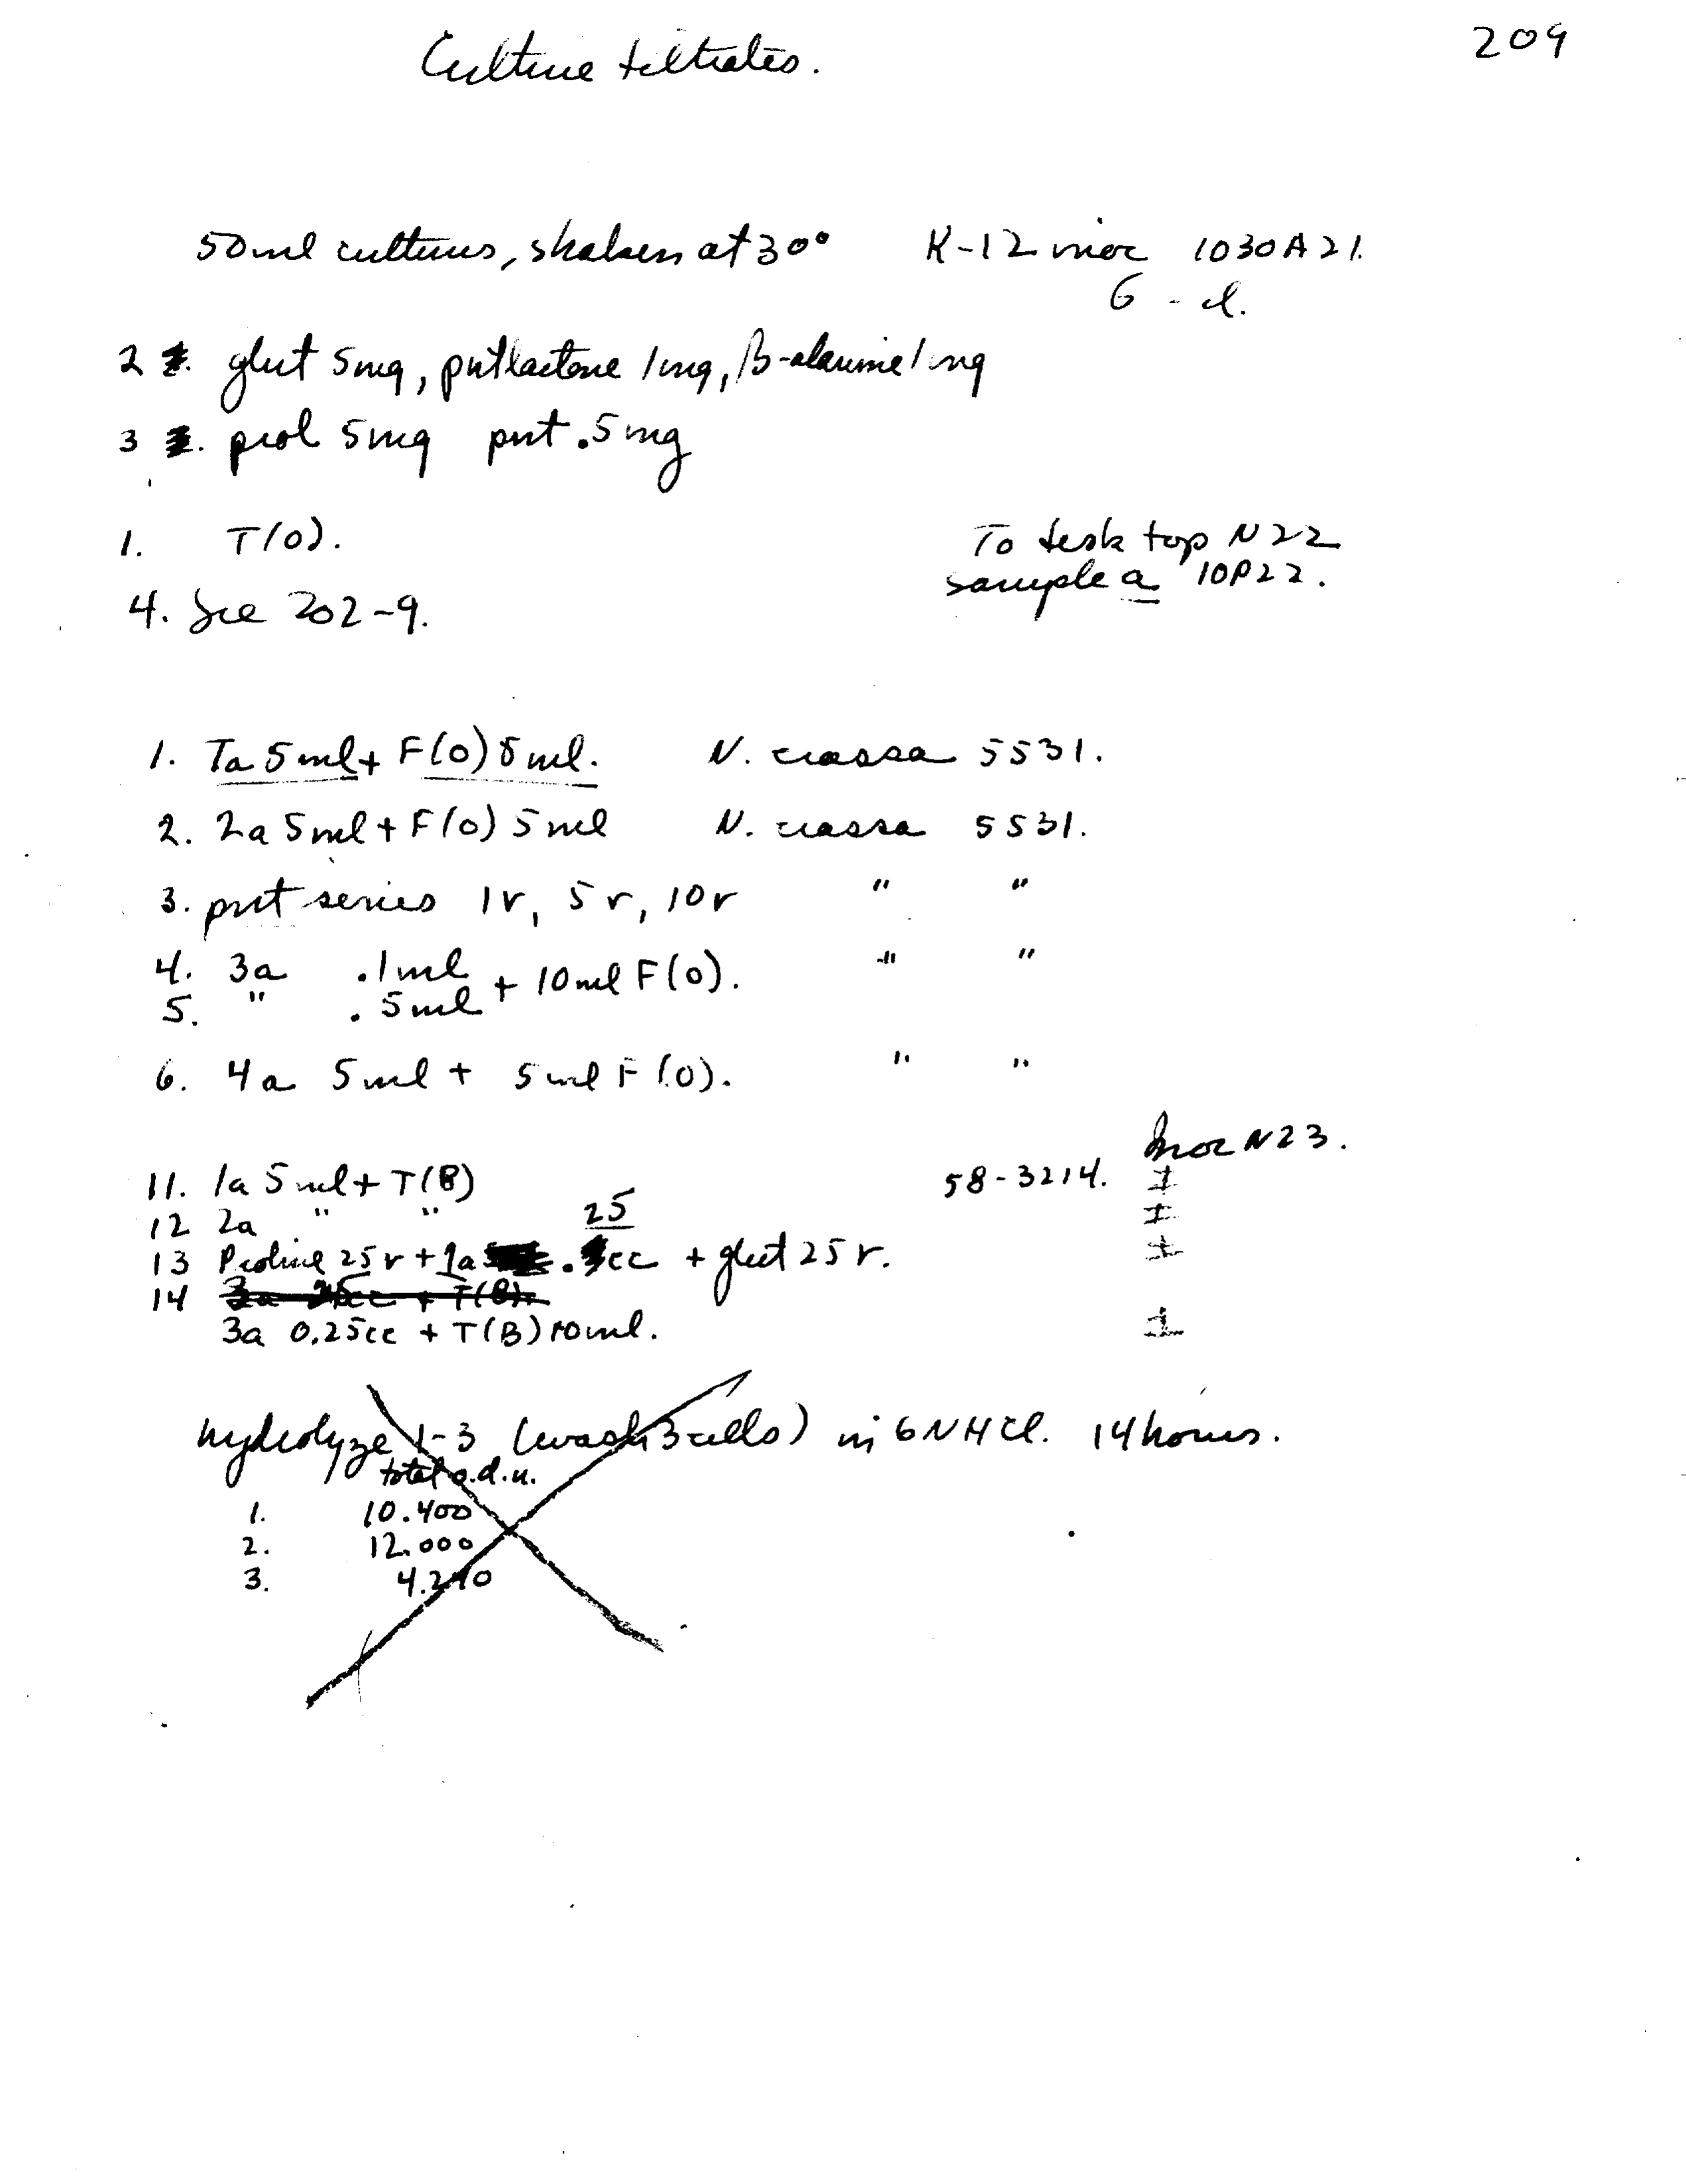 209
Culture filtrates.
50ml cultures, shaken at 30° K-12 inoc 1030A21.
6 - d.
2. glut 5mg, putlactone 1mg, β-alanine 1mg
3. prol 5mg pnt .5mg
1. T(0).
To desk top N22
sample a 10P22.
4. See 202-9.
1. Ta 5ml + F(0) 5ml. N. crassa 5531.
2. 2a 5ml + F(0) 5ml N. crassa 5531.
3. pnt series 1r, 5r, 10r " "
4. 3a .1ml + 10ml F(0). " "
5. " .5ml
6. 4a 5ml + 5ml F(0). " "
Inoc N23.
11. 1a 5ml + T(B) 58-3214. ±
12 2a " " ±
25
13 Proline 25r + 1a . cc + glut 25r. ±
14 3a 25cc + T(B).
3a 0.25cc + T(B) 10ml. ±
hydrolyze 1-3 (wash 3 cells) in 6N HCl. 14 hours.
total o.d.u.
1. 10.400
2. 12.000
3. 4.210